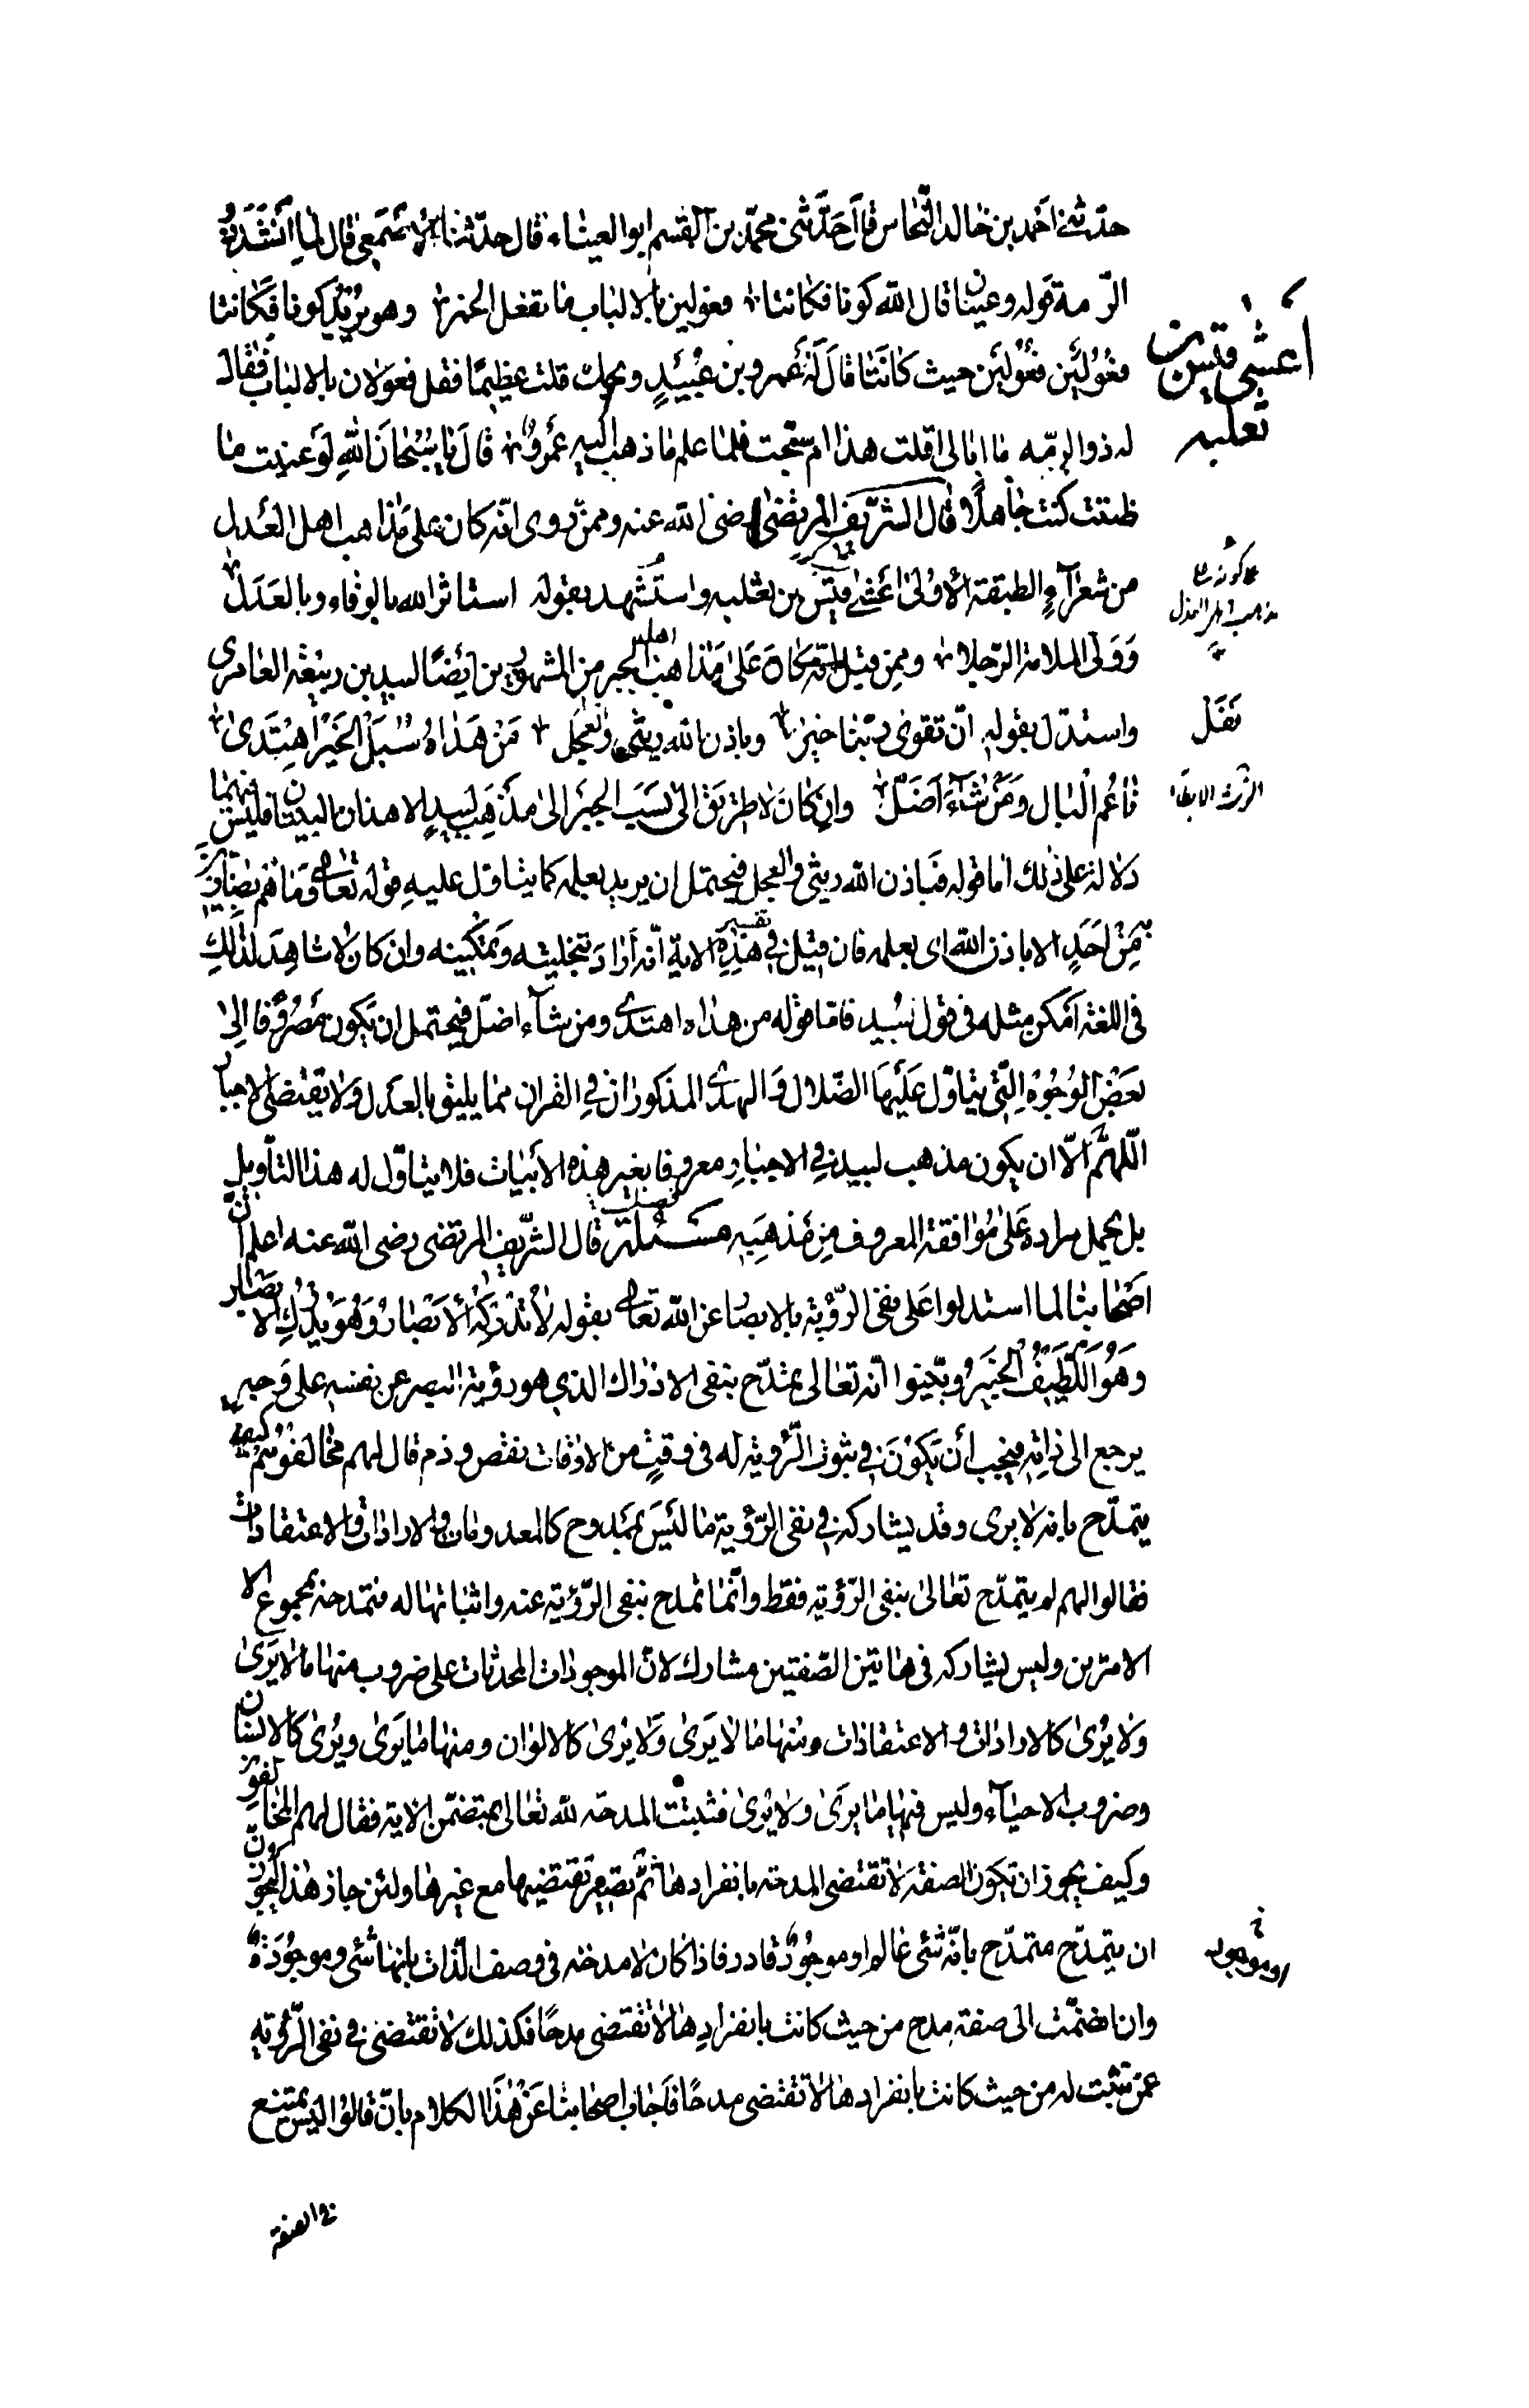 حدّثنی احمد بن خالد النّخاس قال حَدَّثنی محمّد بن القٰسم ابو العیناء قال حدّثنا الاصمعی قال لما اَنْشَدَ ذو
الرّمة قوله وعینان قال اللّه کونا فکانتا فعولین بالالباب ما تفعل الخمر وهو یرید کونا فکانتا
فَعُوْلَیْن فَعُوْلَیْن حیث کانَتا قالَ لَهُ عَمرو بن عُبَیْدٍ ویحک قلت عظیمًا فقل فعولان بالالباب فقال
له ذو الرمّه ما ابالی اقلت هذا ام سبّحت فلما علم ما ذهب الیه عَمْرو قال یا سُبْحانَ اللّهِ لَوْ عنیت ما
ظننت کنت جاهلًا قال الشّریف المرتضیٰ رضی اللّه عنه وممّن روی انّه کان علی مذاهب اهل العَدل
من شعرآءِ الطبقة الأولیٰ اعشیٰ قیس بن ثعلبه واستشهد بقوله استاثر الله بالوفاء وبالعَدَل
وَوَلّی الملامة الرّجلا وممن قیل انّه کانَ عَلیٰ مذاهب اهل الجبر من المشهورین ایضًا لبید بن ربیعة العامری
واستدلّ بقوله انّ تقوی ربّنا خیر نفل وباذن اللّه ریثی والعجل مَنْ هَداهُ سُبُلَ الخَیْرِ اهْتَدیٰ
ناعم البال ومَنْ شآءَ اَضَلّ وان کانَ لا طریق الیٰ نسَب الجبر الیٰ مذهَب لبیدٍ الا هذان البیتان فلیس فیهما
دلالة علی ذلک اما قوله فباذن اللّه ریثی والعجل فیحتمل ان یرید بعلمه کما یتاوّل علیهِ قوله تعالی وما هم بضارّین
به مِنْ اَحَدٍ الا باذن اللّه ای بعلمه فان قیل فی تفسیر هَذِهِ الایة انّه اَرادَ بتخلیته وتمکینه وان کان لا شاهدَ لذٰلکَ
فی اللغة اَمْکن مثله فی قول لبید فامّا قوله من هداه اهتدیٰ ومن شآء اضلّ فیحتمل ان یکون مَصْرُوفًا اِلیٰ
بَعْضِ الوُجُوْهِ الّتی یتاوّل عَلَیْهَا الضّلال وَالهدیٰ المذکوران فی القران مما یلیق بالعدل ولا یقتضی الاجبار
اللّهمَّ الّا ان یکون مذهب لبید فی الاجبار معروفا بغیر هذه الأبیات فلا یتاوّل له هذا التأویل
بل یحمل مراده عَلیٰ مُوافقة المعروف مِن مَذهَبِه مسئلة قال الشّریف المرتضی رضی اللّه عنه اعلم انّ
اَصْحٰابنا لما استدلوا عَلی نفی الرّؤیة بالابصار عن اللّه تعالی بقوله لا تُدْرِکُهُ الْاَبْصارُ وَهُوَ یُدْرِکُ الْاَبْصار
وَهُوَ اللّطِیْفُ الخَبِیْرُ وبیّنوا انّه تعالی تمدّح بنفی الادراک الذی هو رؤیة البصر عن نفسه علی وجه
یرجع الی ذاتِهِ فیجب أن یکونَ فی ثبوت الرّؤیة له فی وقتٍ من الاوقات نقص وذم قال لهم مخالفوهم کیف
یتمدّح بانه لا یری وقد یشارکه فی نفی الرّؤیة ما لیسَ بممدوح کالمعدومات والارادات والاعتقادات
فقالوا لهم لم یتمدّح تعالیٰ بنفی الرّؤیة فقط وانّما تمدح بنفی الرّؤیة عنه واثباتها له فتمدحه بمجموع الا
الامرین ولیس یشارکه فی هاتین الصّفتین مشارک لانّ الموجودات المحدثات علی ضروب منها ما لا یَریٰ
ولا یُریٰ کالارادات والاعتقادات ومنها ما لا یَریٰ ویُریٰ کالالوان ومنها ما یَریٰ ویُریٰ کالانسان
وضروب الاحیآء ولیس فیها ما یَریٰ ولا یُریٰ فثبتت المدحة للّه تعالی بمتضمّن الایة فقال لهم المخالفون
وکیف یجوز ان تکون الصفة لا تقتضی المدحة بانفرادها ثمّ تصیر تقتضیها مع غیرها ولئن جاز هذا لیجوزنّ
ان یتمدّح متمدّح بانّه شیٔ عالم او موجودٌ قادر فاذا کان لا مدحة فی وصف الذّات بانها شیٔ وموجُودَةٌ
وان انضمّت الی صفة مدح من حیث کانت بانفرادِها لا تقتضی مدحًا فکذلک لا تقتضی فی نفی الرّؤیة
عمّن تثبت له من حیث کانت بانفرادها لا تقتضی مدحًا فاَجاب اصحابنا عَنْ هٰذا الکلام بانّ قالوا لیس یمتنع
اعشٰی قیس بن
ثعلبه
مذهب اهل العدل
نَفَل
او موجود
فی الصفة